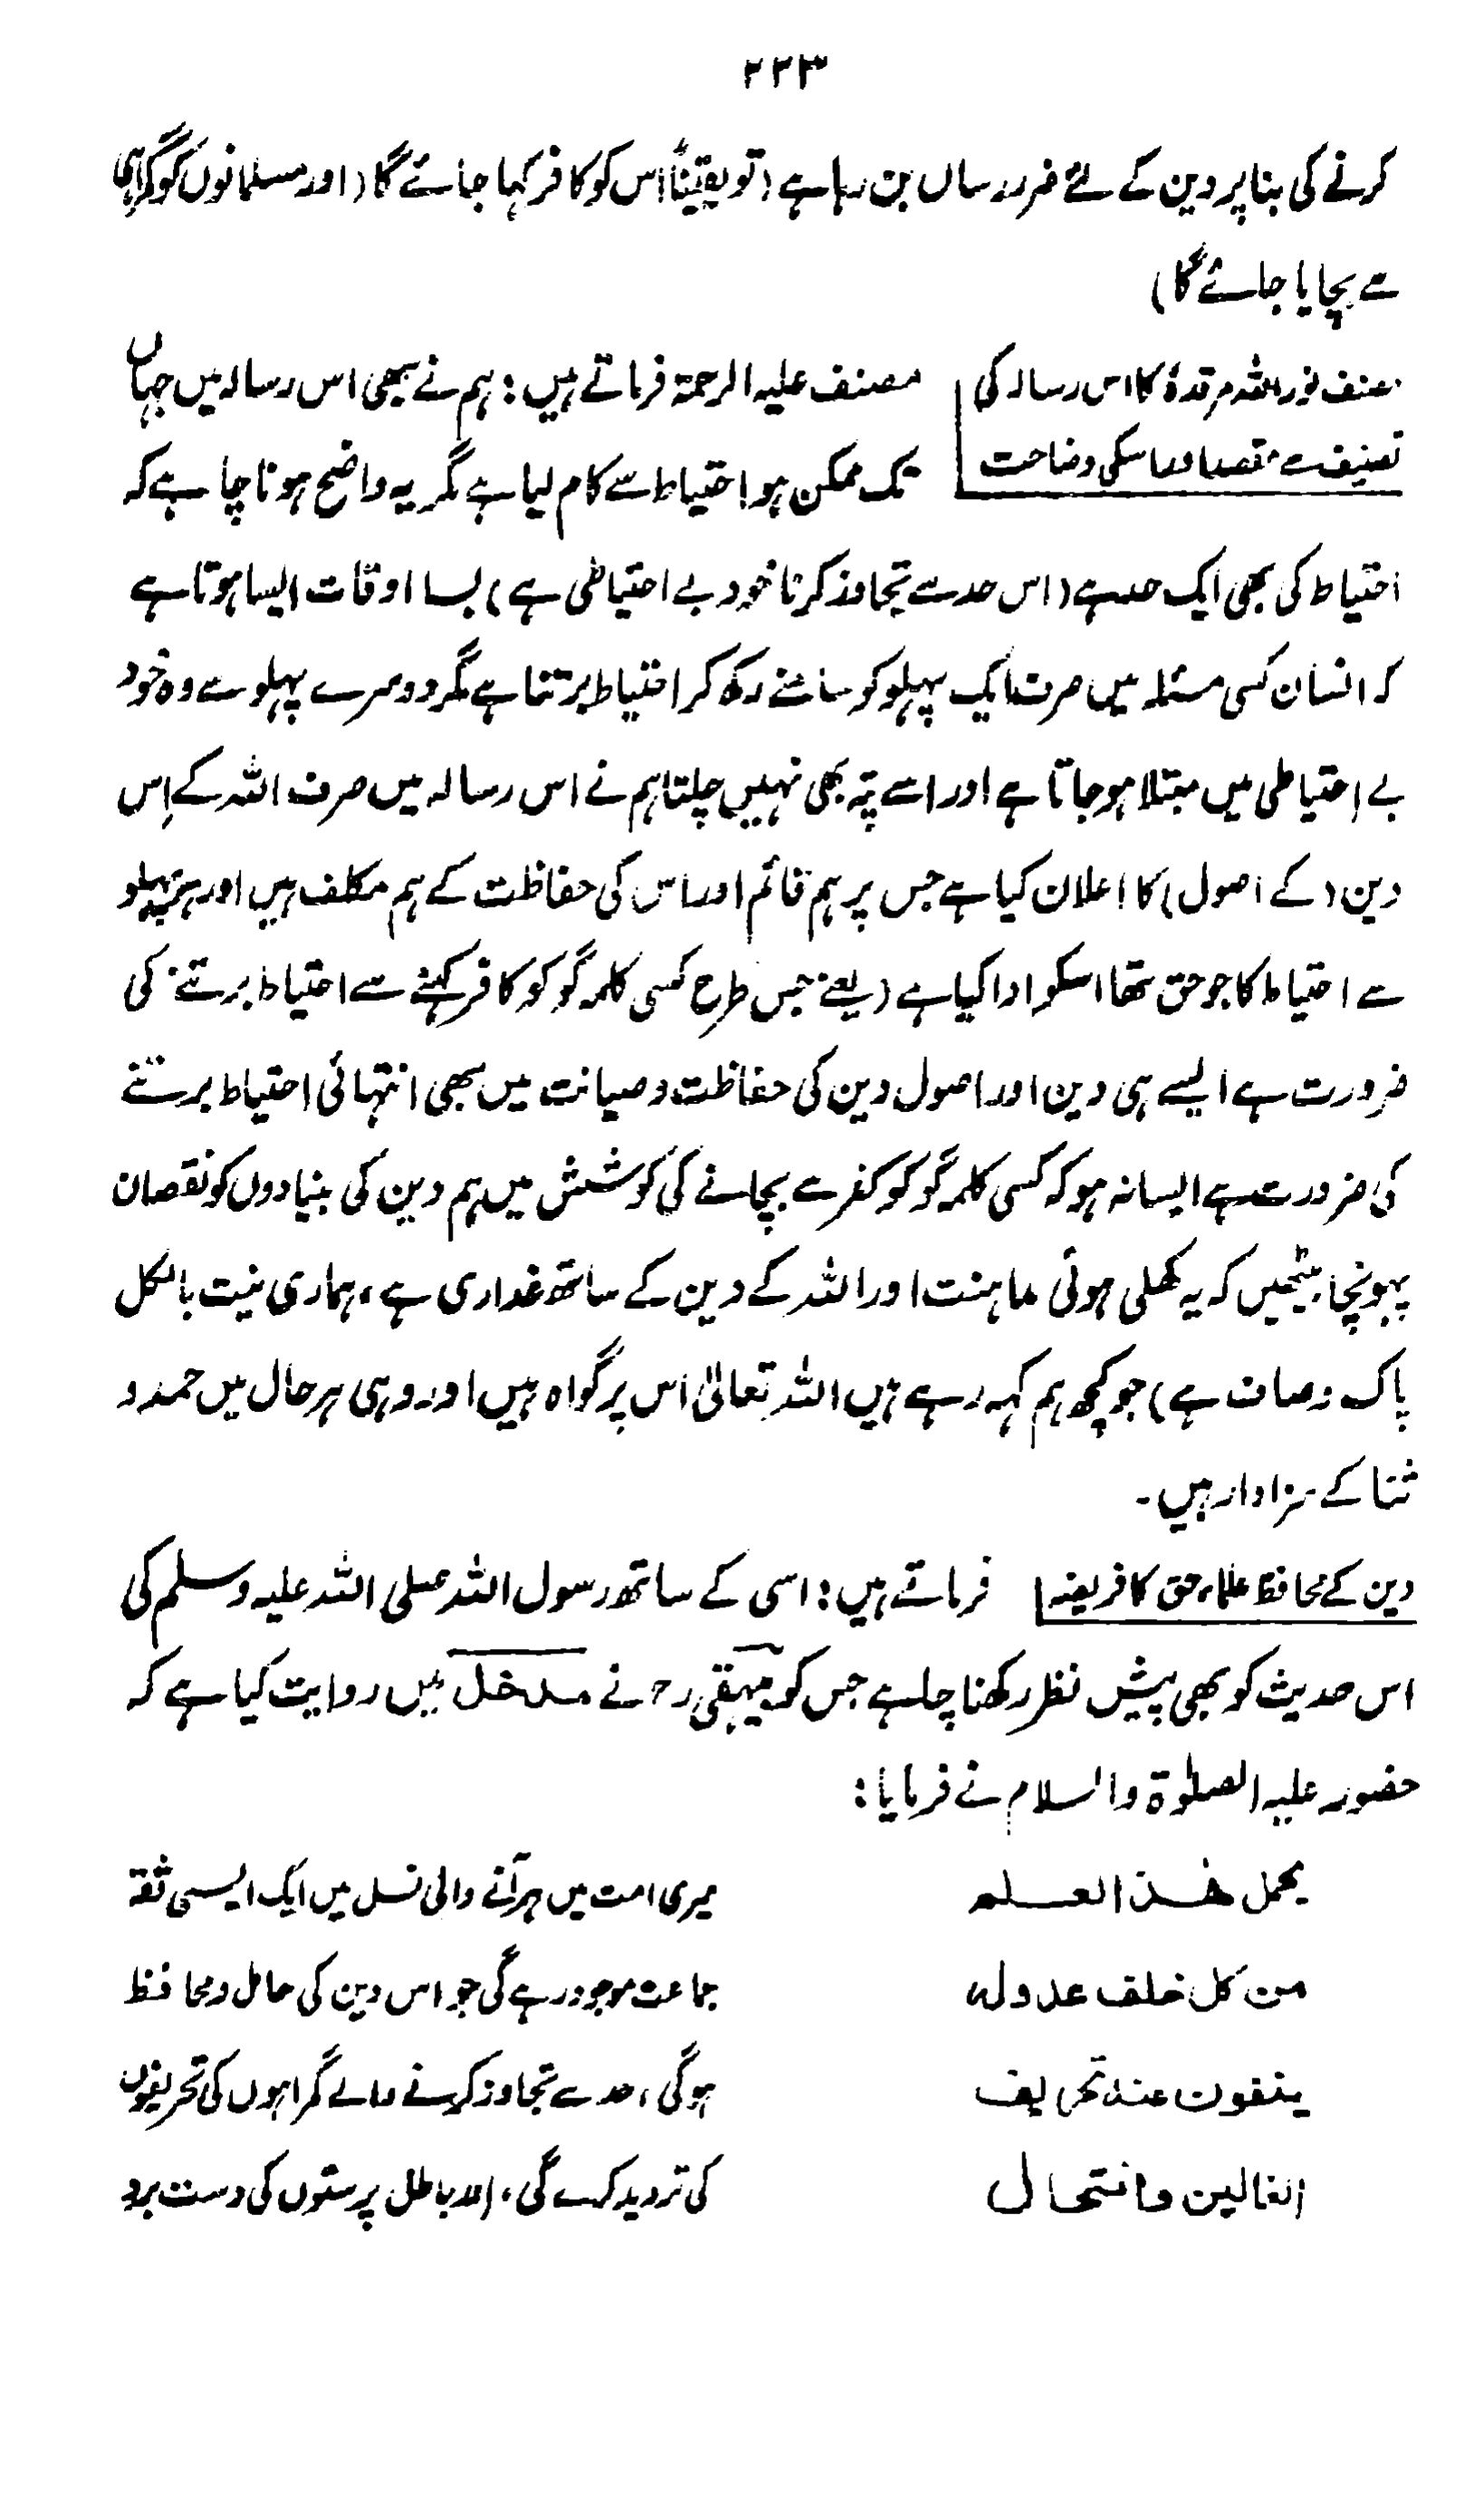 ۲۲۳
کرنے کی بنا پر دین کے لئے ضرر رساں بن رہا ہے (تو یقیناً اس کو کافر کہا جائے گا (اور مسلمانوں کو گمراہی
سے بچایا جائے گا)
مصنف نور اللہ مرقدہٗ کا اس رسالہ کی
تصنیف سے مقصد اور اس کی وضاحت
مصنف علیہ الرحمۃ فرماتے ہیں: ہم نے بھی اس رسالہ میں جہاں
تک ممکن ہو احتیاط سے کام لیا ہے مگر یہ واضح ہونا چاہئے کہ
احتیاط کی بھی ایک حد ہے (اس حد سے تجاوز کرنا خود بے احتیاطی ہے) بسا اوقات ایسا ہوتا ہے
کہ انسان کسی مسئلہ میں صرف ایک پہلو کو سامنے رکھ کر احتیاط برتتا ہے مگر دوسرے پہلو سے وہ خود
بے احتیاطی میں مبتلا ہو جاتا ہے اور اسے پتہ بھی نہیں چلتا ہم نے اس رسالہ میں صرف اللہ کے اِس
دین (کے اصول) کا اعلان کیا ہے جس پر ہم قائم اور اس کی حفاظت کے ہم مکلف ہیں اور ہر پہلو
سے احتیاط کا جو حق تھا اسکو ادا کیا ہے (یعنے جس طرح کسی کلمہ گو کو کافر کہنے سے احتیاط برتنے کی
ضرورت ہے ایسے ہی دین اور اصول دین کی حفاظت و صیانت میں بھی انتہائی احتیاط برتنے
کی ضرورت ہے ایسا نہ ہو کہ کسی کلمہ گو کو کفر سے بچانے کی کوشش میں ہم دین کی بنیادوں کو نقصان
پہونچا بیٹھیں کہ یہ کھلی ہوئی مداہنت اور اللہ کے دین کے ساتھ غداری ہے، ہماری نیت بالکل
پاک و صاف ہے) جو کچھ ہم کہہ رہے ہیں اللہ تعالیٰ اس پر گواہ ہیں اور وہی ہر حال میں حمد و
ثنا کے سزاوار ہیں۔
دین کے محافظ علماء حق کا فریضہ
فرماتے ہیں: اسی کے ساتھ رسول اللہ صلی اللہ علیہ وسلم کی
اس حدیث کو بھی پیش نظر رکھنا چاہئے جس کو بیہقی رح نے مدخل میں روایت کیا ہے کہ
حضور علیہ الصلوٰۃ والسلام نے فرمایا:
یحمل ھٰذا العلم
من کل خلف عدولہ
ینفون عنہ تحریف
الغالین وانتحال
میری امت میں ہر آنے والی نسل میں ایک ایسی ثقہ
جماعت موجود رہے گی جو اس دین کی حامل و محافظ
ہوگی، حد سے تجاوز کرنے والے گمراہوں کی تحریفوں
کی تردید کرے گی، اور باطل پرستوں کی دست برد